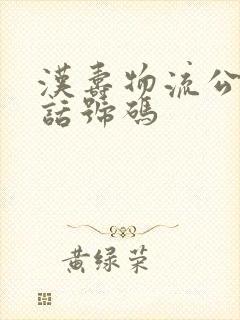 漢壽物流公
話號碼
黄绿荣